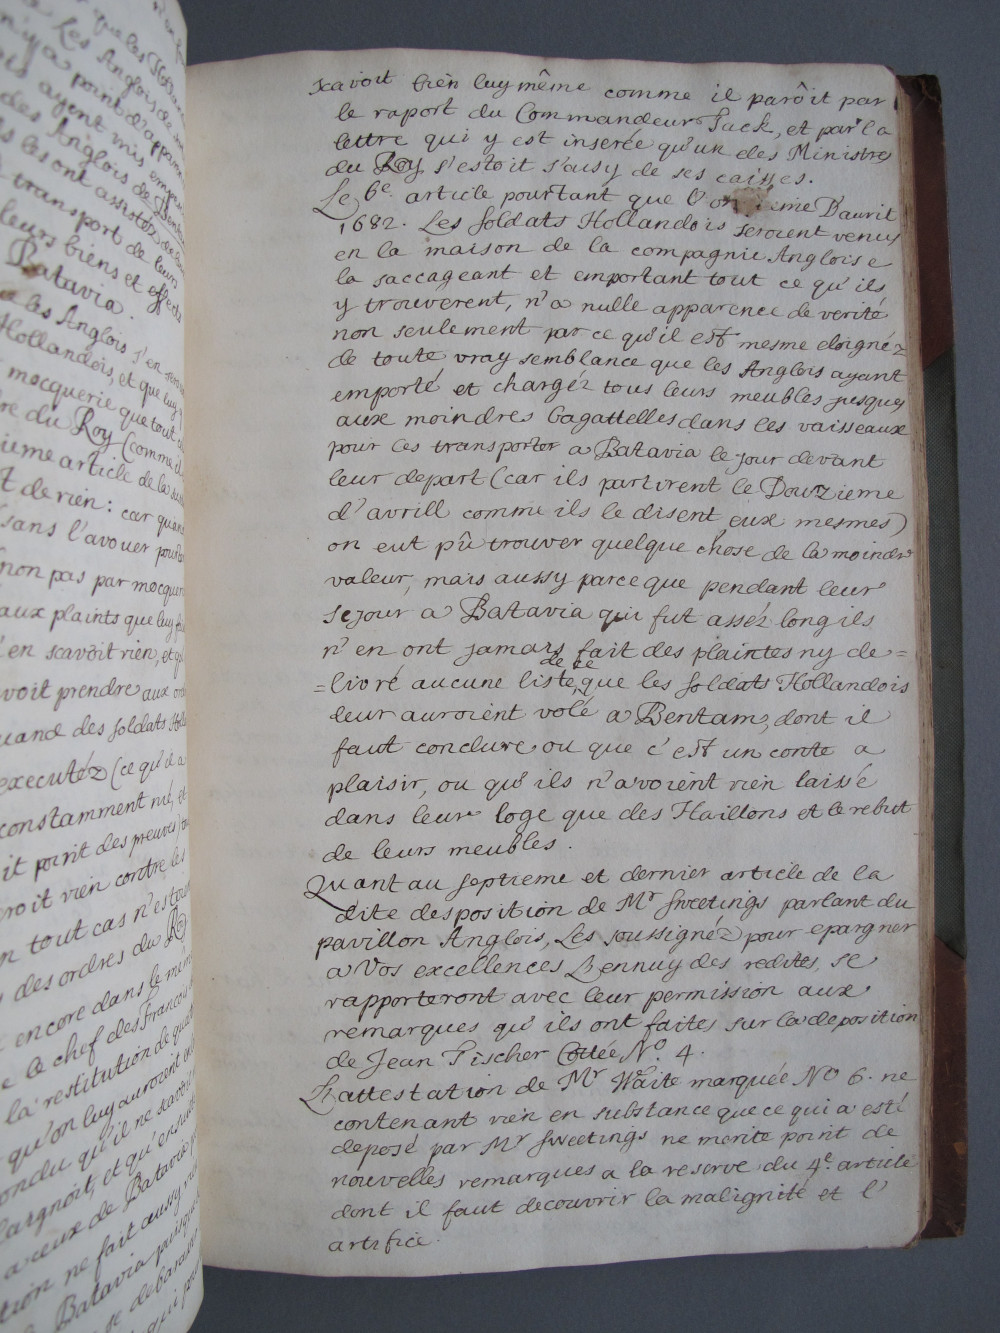 n'y a point d'apparen
ais ayent mis empes
des Anglois de Ban
les ont assistéz de leur
transport de leurs
leurs biens et effects
Batavia.
les Anglois s'en
Hollandois, et que luy
mocquerie que tout
re du Roy (comme il
ieme article de la su
t de rien: car quand
sans l'avouer pour
non pas par mocquer
aux plaints que luy fai
en scavoit rien, et q
voit prendre aux
uand des soldats Holl
executéz (ce qu'il a
constamment nié, et
it point des preuves
roit rien contre les
n tout cas n'estoit
des ordres du Roy
encore dans le mem
le chef des Francois
la restitution de quat
qu'on luy auroient
ondu qu'il ne scavoit
laignoit, et qu'ensuite
a ceux de Batavia
tion ne fait aussy
Batavia puisque
se debarass
qui
scavoit bien luy même comme il parôit par
le raport du Commandeur Tack, et par la
lettre qui y est inserée qu'un des Ministres
du Roy s'estoit saisy de ses caisses.
Le 6e. article pourtant que l'on ieme Davril
1682. Les soldats Hollandois seroient venus
en la maison de la compagnie Angloise
la saccageant et emportant tout ce qu'ils
y trouverent, n'a nulle apparence de verité
non seulement par ce qu'il est mesme eloignéz
de toute vray semblance que les Anglois ayant
emporté et chargéz tous leurs meubles jusques
aux moindres bagattelles dans les vaisseaux
pour les transporter a Batavia le jour devant
leur depart (car ils partirent le Douzieme
d'avrill comme ils le disent eux mesmes)
on eut pû trouver quelque chose de la moindre
valeur, mais aussy parce que pendant leur
sejour a Batavia qui fut asséz long ils
n'en ont jamais fait des plaintes ny de=
=livré aucune liste, de ce que les soldats Hollandois
leur auroient volé a Bentam, dont il
faut conclure ou que c'est un conte a
plaisir, ou qu'ils n'avoient rien laissé
dans leur loge que des Haillons et le rebut
de leurs meubles.
Quant au septieme et dernier article de la
dite desposition de Mr Sweetings parlant du
pavillon Anglois, Les soussignéz pour epargner
a Vos excellences L'ennuy des redites, se
rapporteront avec leur permission aux
remarques qu'ils ont faites sur la deposition
de Jean Fischer Cottée No. 4.
L'attestation de Mr Waite marquée No 6. ne
contenant rien en substance que ce qui a esté
deposé par Mr Sweetings ne merite point de
nouvelles remarques a la reserve du 4e. article
dont il faut decouvrir la malignité et l'
artifice.